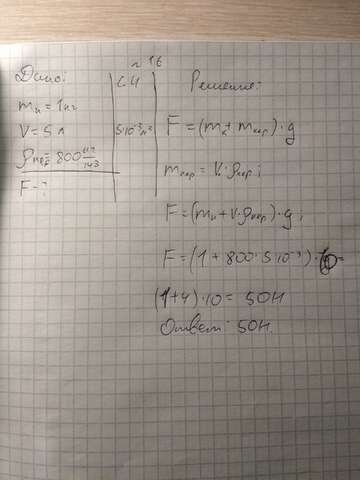 № 16
Дано:
mк = 1 кг
V = 5 л
ρкер = 800 кг/м3
F - ?
СИ
5·10⁻³ м³
Решение:
F = (mк + mкер)·g
mкер = V·ρкер;
F = (mк + V·ρкер)·g;
F = (1 + 800·5·10⁻³)·10 =
(1+4)·10 = 50Н
Ответ: 50Н.